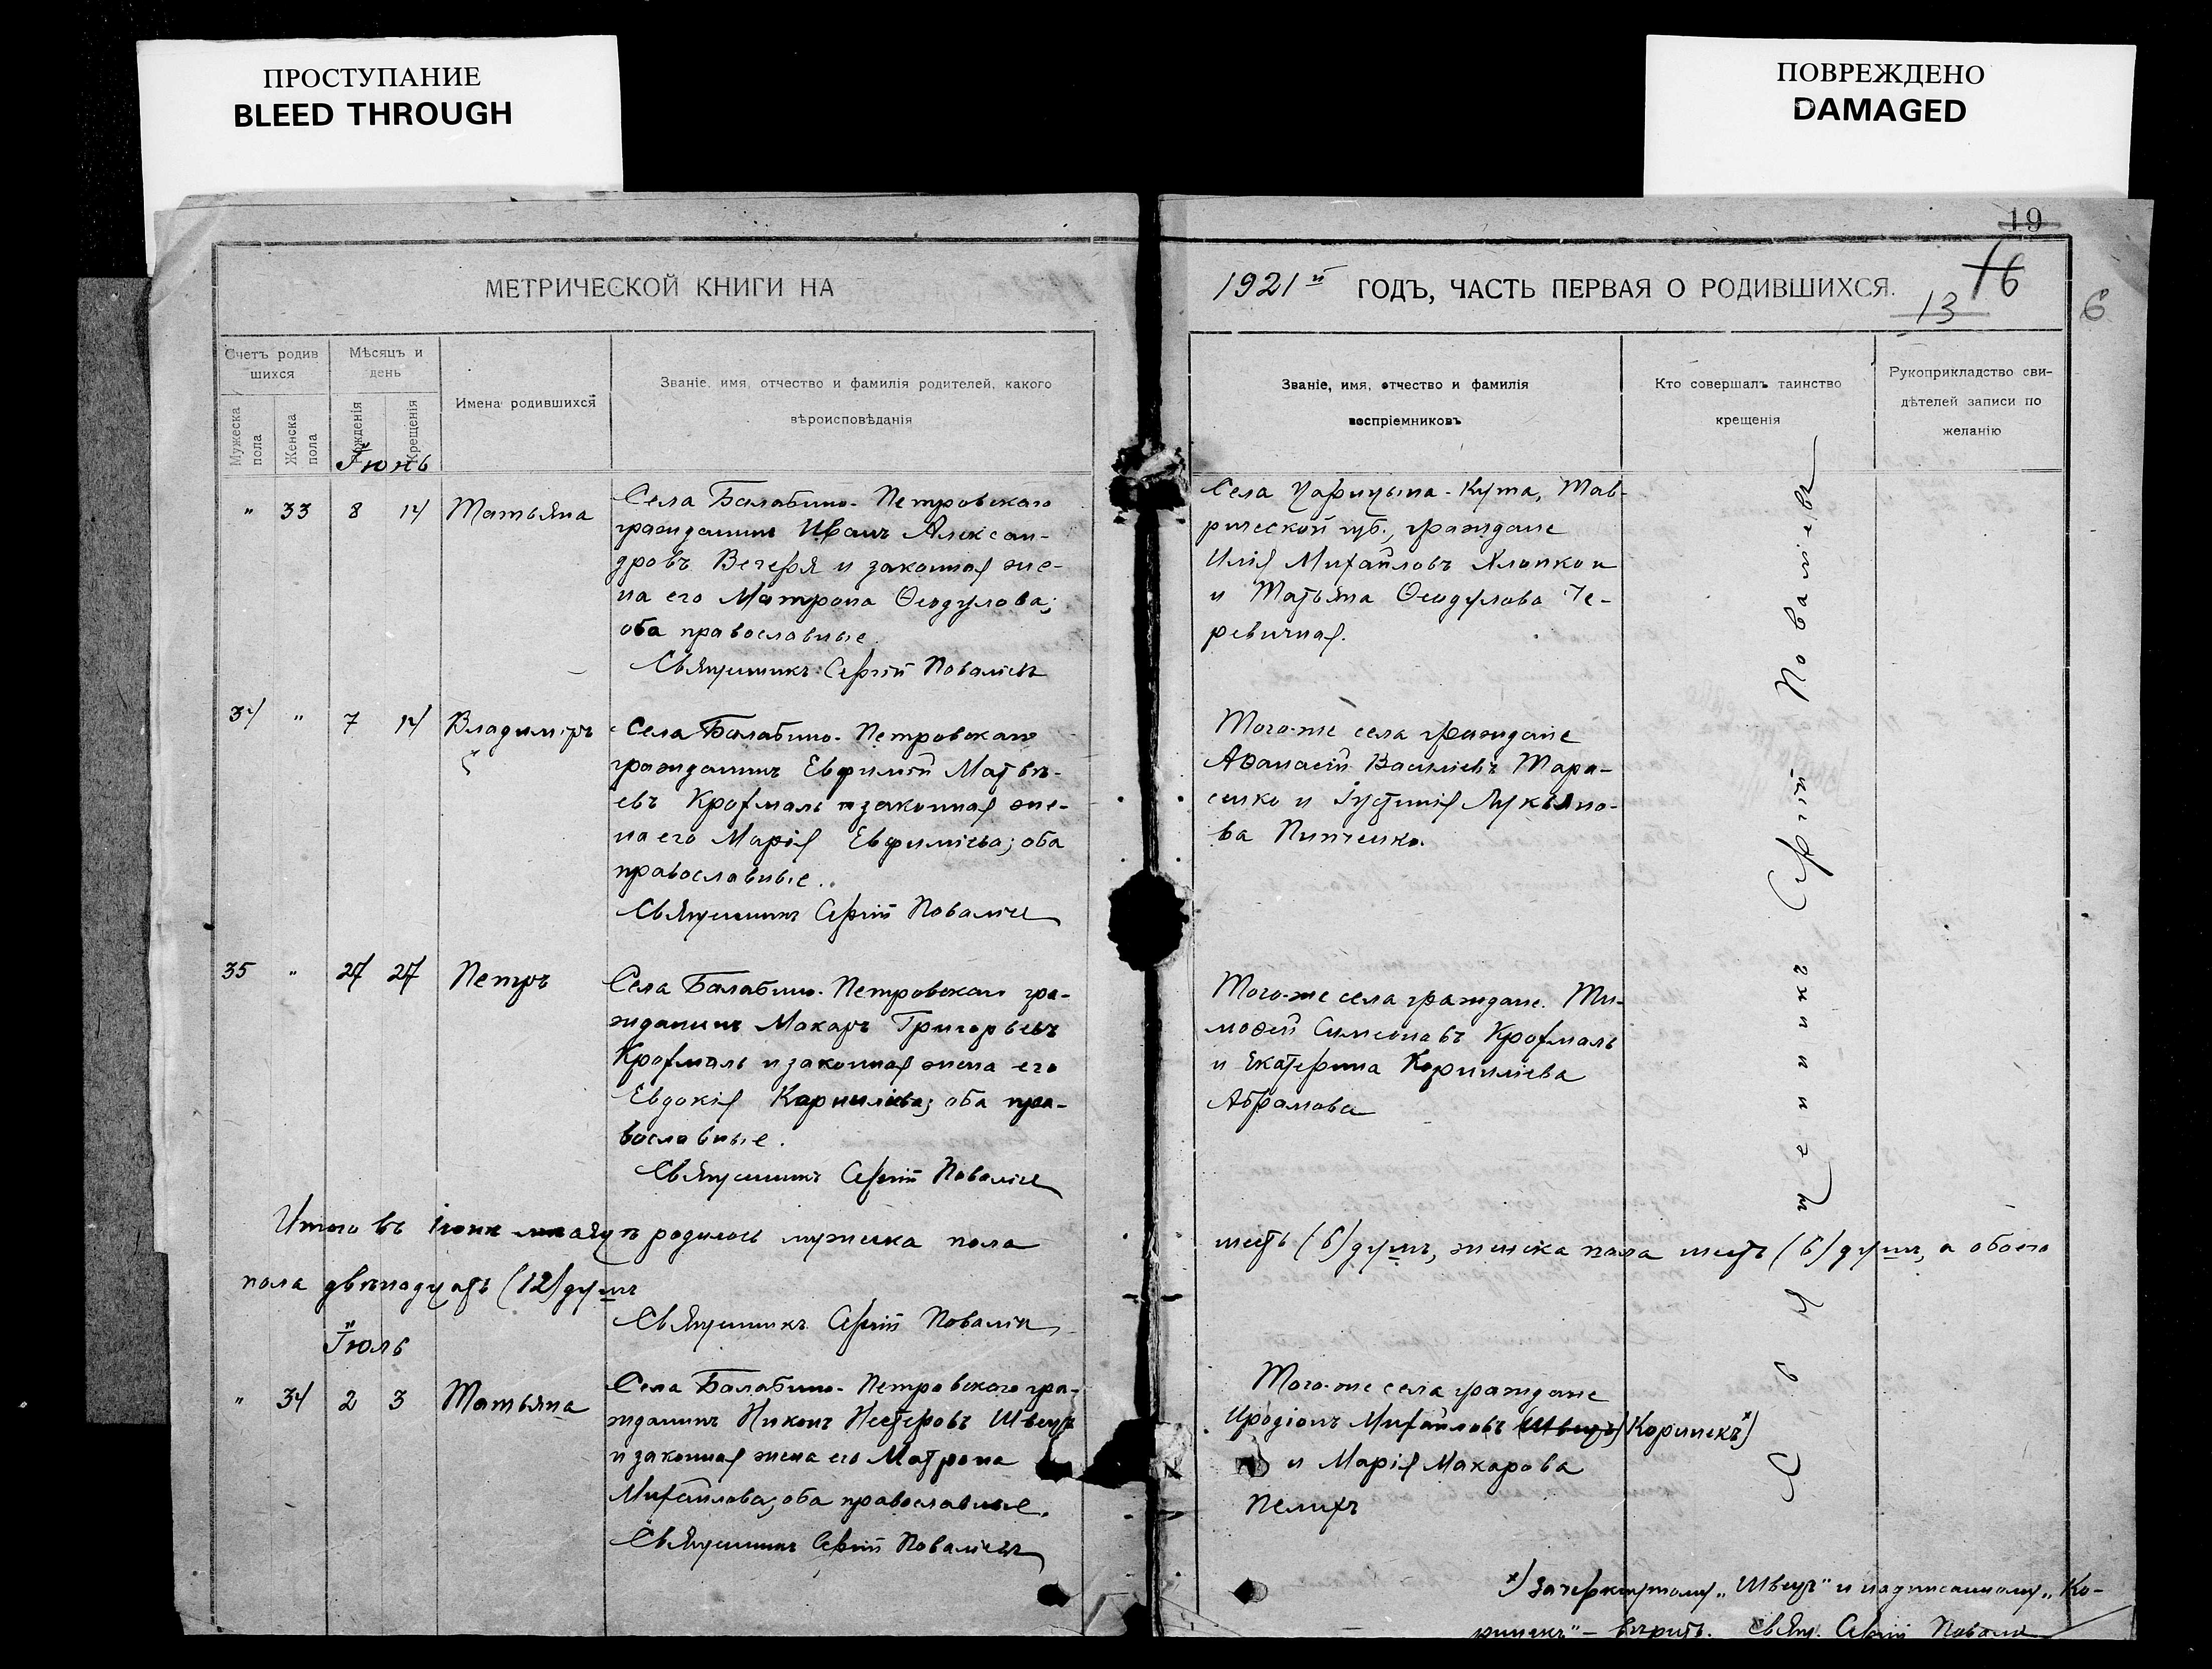 ПРОСТУПАНИЕ
BLEED THROUGH
ПОВРЕЖДЕНО
DAMAGED
19
16
13
6
МЕТРИЧЕСКОЙ КНИГИ НА
1921й ГОДЪ, ЧАСТЬ ПЕРВАЯ О РОДИВШИХСЯ.
Счетъ родив
шихся
Мужеска пола
Женска пола
Мѣсяцъ и
день
Рожденія
Крещенія
Имена родившихся
Званіе, имя, отчество и фамилія родителей, какого
вѣроисповѣданія
Званіе, имя, отчество и фамилія
воспріемниковъ
Кто совершалъ таинство
крещенія
Рукоприкладство сви-
дѣтелей записи по
желанію
Іюнь
" 33 8 14 Татьяна
Села Балабино-Петровскаго
гражданинъ Иванъ Алексан-
дровъ Вечеря и законная же-
на его Матрона Ѳеодулова;
оба православные.
Священникъ Сергій Поваліевъ
Села Царицына-Кута, Тав-
рической губ., граждане
Илія Михайловъ Клопко и
и Татьяна Ѳеодулова Че-
ревичная.
34 " 7 14 Владиміръ
Села Балабино-Петровскаго
гражданинъ Евфимій Матвѣ-
евъ Крохмаль и законная же-
на его Марія Евфиміева; оба
православные.
Священникъ Сергій Поваліев
Того-же села граждане
Аѳанасій Василіевъ Тара-
сенко и Іустинія Лукіяно-
ва Пипченко.
35 " 27 27 Петръ
Села Балабино-Петровскаго гра-
жданинъ Макаръ Григорьевъ
Крохмаль и законная жена его
Евдокія Корниліева; оба пра-
вославные.
Священникъ Сергій Поваліев
Того-же села граждане. Ти-
моѳей Симеоновъ Крохмаль
и Екатерина Корниліева
Абрамова
Итого въ іюнѣ мѣсяцѣ родилось мужеска пола
шесть (6) душъ, женска пола шесть (6) душъ, а обоего
пола двѣнадцать (12) душъ
Священникъ Сергій Поваліев
Іюль
" 34 2 3 Татьяна
Села Балабино-Петровскаго гра-
жданинъ Никонъ Нестеровъ Швецъ
и законная жена его Матрона
Михайлова; оба православные.
Священникъ Сергій Поваліевъ
Того-же села граждане
Иродіонъ Михайловъ (Швецъ) Коринекъ*)
и Марія Макарова
Пелихъ
Священникъ Сергій Поваліевъ
*) Зачеркнутому „Швецъ" и надписанному „Ко-
ринекъ" – вѣрить. Свящ. Сергій Повали